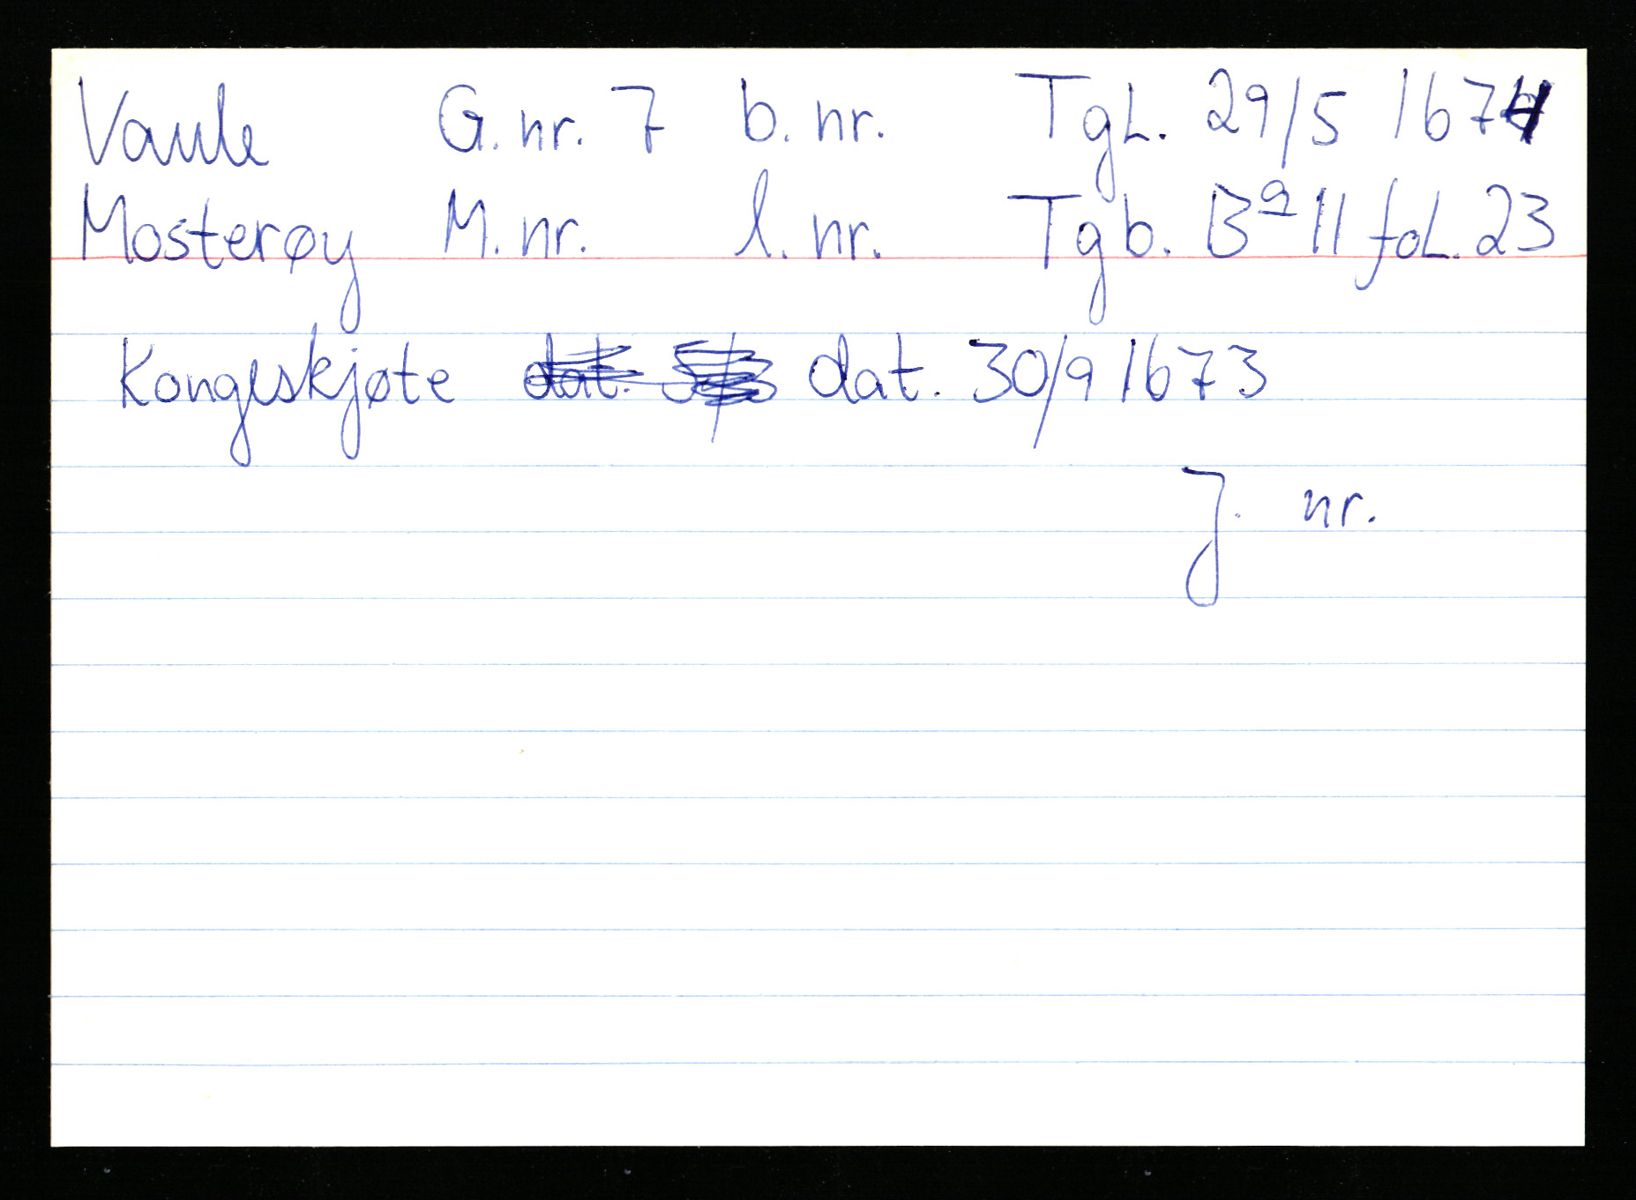 Vaule G.nr. 7 b.nr. TgL. 29/5 1674
Mosterøy M.nr. l.nr. Tgb. Bª 11 foL. 23
Kongeskjøte dat. dat. 30/9 1673
J. nr.